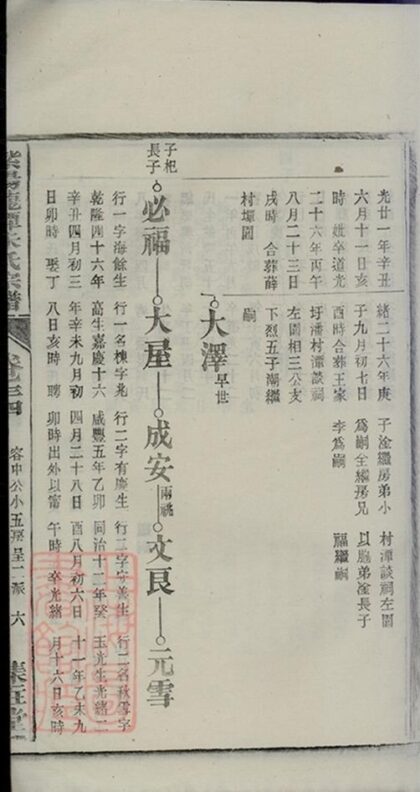 光廿一年辛丑
六月十一日亥
時 妣卒道光
二十六年丙午
八月二十三日
戌時 合葬薛
村壩圖
緒二十六年庚
子九月初七日
酉時合葬王家
圩潘村潭談祠
左圖相三公支
下烈五子潮繼
嗣
子淦繼房弟小
為嗣仝繼房兄
李為嗣
村潭談祠左圖
以胞弟淦長子
福繼嗣
大澤 早世
子杞
長子
必福
大屋
成安 兩祧
文良
元雪
行一字海餘生
乾隆四十六年
辛丑四月初三
日卯時 娶丁
行一名棟字兆
高生嘉慶十六
年辛未九月初
八日亥時 聘
行二字有慶生
咸豐五年乙卯
四月二十八日
卯時出外以甯
行二字守善生
同治十二年癸
酉八月初六日
午時 卒光緒
行二名秋雪字
玉光生光緒二
十一年乙未九
月十六日亥時
宗譜
卷之四
容中公小五房呈二派 六
集狂堂